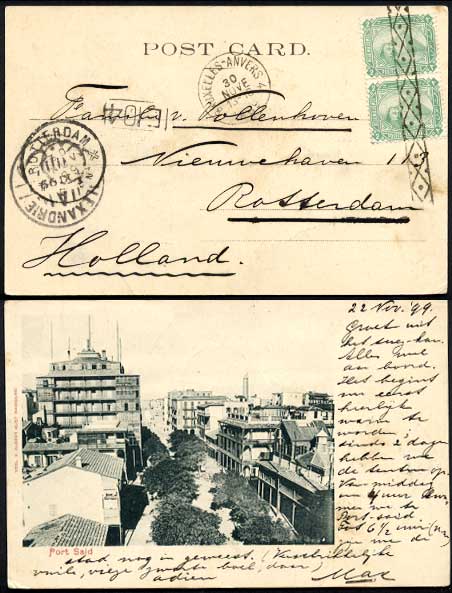 POST CARD.
BRUXELLES-ANVERS 4
30
NOVE
Familie v. Vollenhoven
Nieuwehaven 113
Rotterdam
Holland.
ROTTERDAM
ALEXANDRIE
22 Nov. '99.
Groet uit
het Suez-kan.
Alles wel
an boord.
Het begint
nu eerst
heerlijk
warm te
worden,
sinds 2 dagen
hebben we
de tenten op.
Van middag
om 4 uur
we te
Port-Said
tot 6½ uur
we de
Port Said
stad nog in geweest. (Verschrikkelijke
vuile, vieze zwarte boel, daar)
adieu
Max